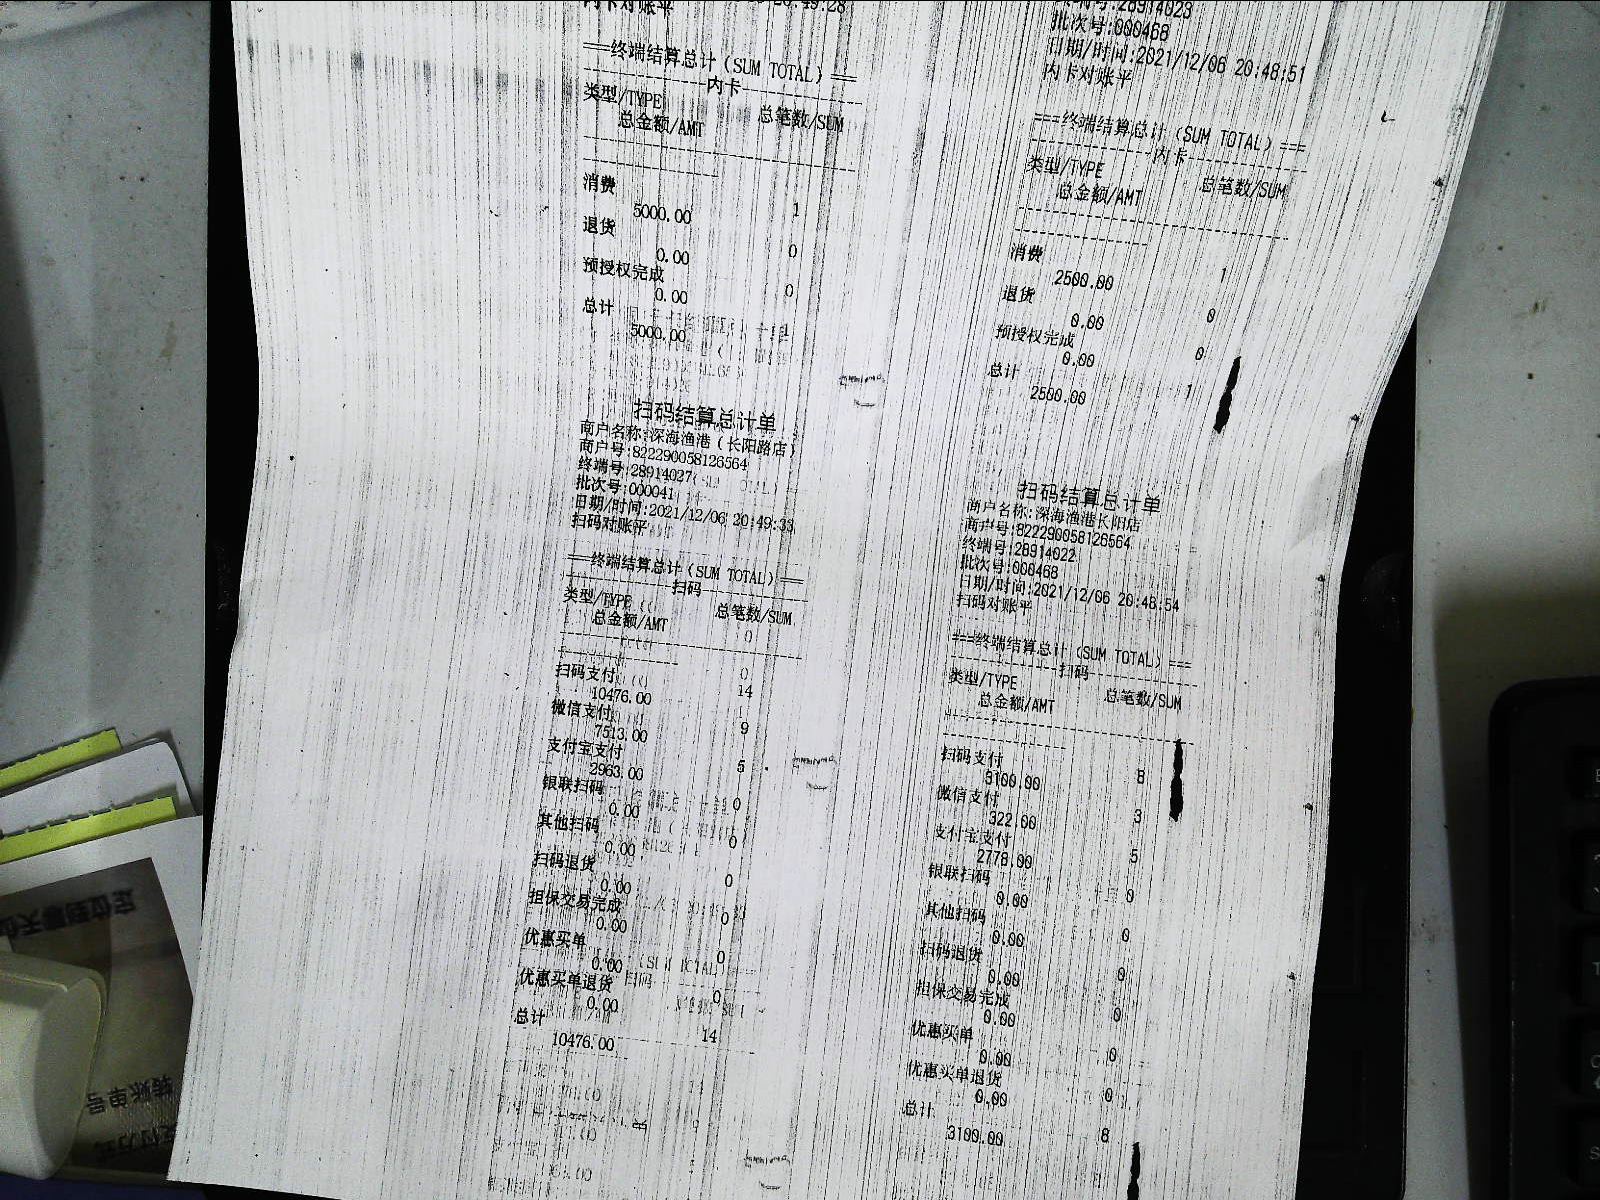 内卡对账平
===终端结算总计（SUM TOTAL）===
内卡
类型/TYPE 总笔数/SUM
总金额/AMT
消费
5000.00 1
退货
0.00 0
预授权完成
0.00 0
总计
5000.00 1
扫码结算总计单
商户名称:深海渔港（长阳路店）
商户号:822290058126564
终端号:28914027
批次号:000041
日期/时间:2021/12/06 20:49:33
扫码对账平
===终端结算总计（SUM TOTAL）===
扫码
类型/TYPE 总笔数/SUM
总金额/AMT
扫码支付
10476.00 14
微信支付
7513.00 9
支付宝支付
2963.00 5
银联扫码
0.00 0
其他扫码
0.00 0
扫码退货
0.00 0
担保交易完成
0.00 0
优惠买单
0.00 0
优惠买单退货
0.00 0
总计
10476.00 14
批次号:000468
日期/时间:2021/12/06 20:48:51
内卡对账平
===终端结算总计（SUM TOTAL）===
内卡
类型/TYPE 总笔数/SUM
总金额/AMT
消费
2500.00 1
退货
0.00 0
预授权完成
0.00 0
总计
2500.00 1
扫码结算总计单
商户名称:深海渔港长阳店
商户号:822290058126564
终端号:28914022
批次号:000468
日期/时间:2021/12/06 20:48:54
扫码对账平
===终端结算总计（SUM TOTAL）===
扫码
类型/TYPE 总笔数/SUM
总金额/AMT
扫码支付
3100.00 8
微信支付
322.00 3
支付宝支付
2778.00 5
银联扫码
0.00 0
其他扫码
0.00 0
扫码退货
0.00 0
担保交易完成
0.00 0
优惠买单
0.00 0
优惠买单退货
0.00 0
总计
3100.00 8
转账单号